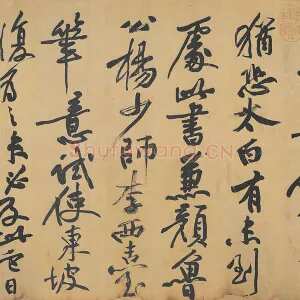 猶恐太白有未到
處此書兼顏魯
公楊少師李西臺
筆意試使東坡
復為之未必及此它日